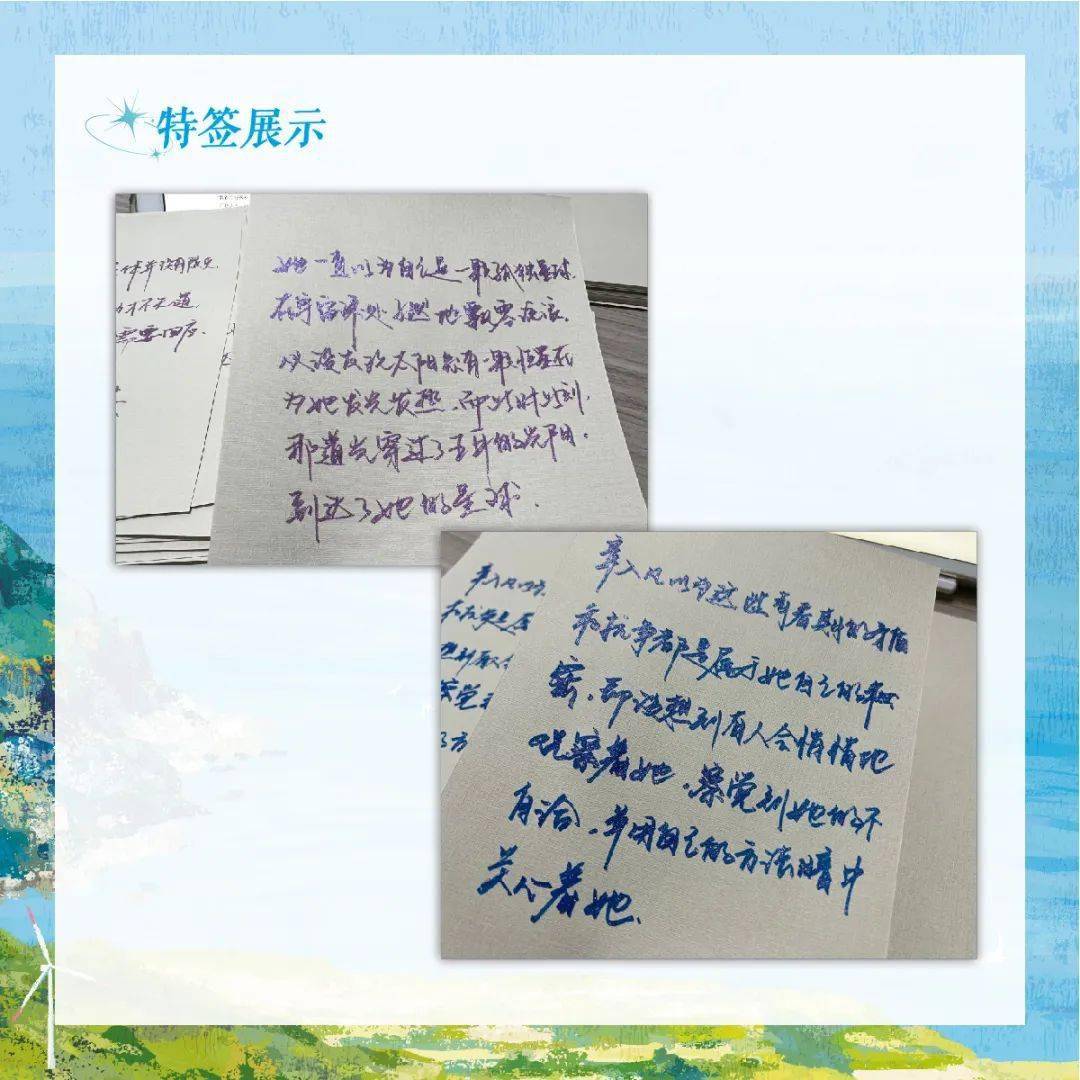 特签展示
体并没有历史
才不知道
需要回应.
她一直以为自己是一颗孤独星球.
在宇宙深处 地飘零流浪.
从没发现太阳系有一颗恒星在
为她发光发热.而此时此刻.
那道光穿过了五年的光阴.
到达了她的星球.
辜入凡以为这些看着具体的矛盾
和抗争都是属于她自己的秘
密.却没想到有人会悄悄地
观察着她.察觉到她的不
自洽.并用自己的方法暗中
关心着她.